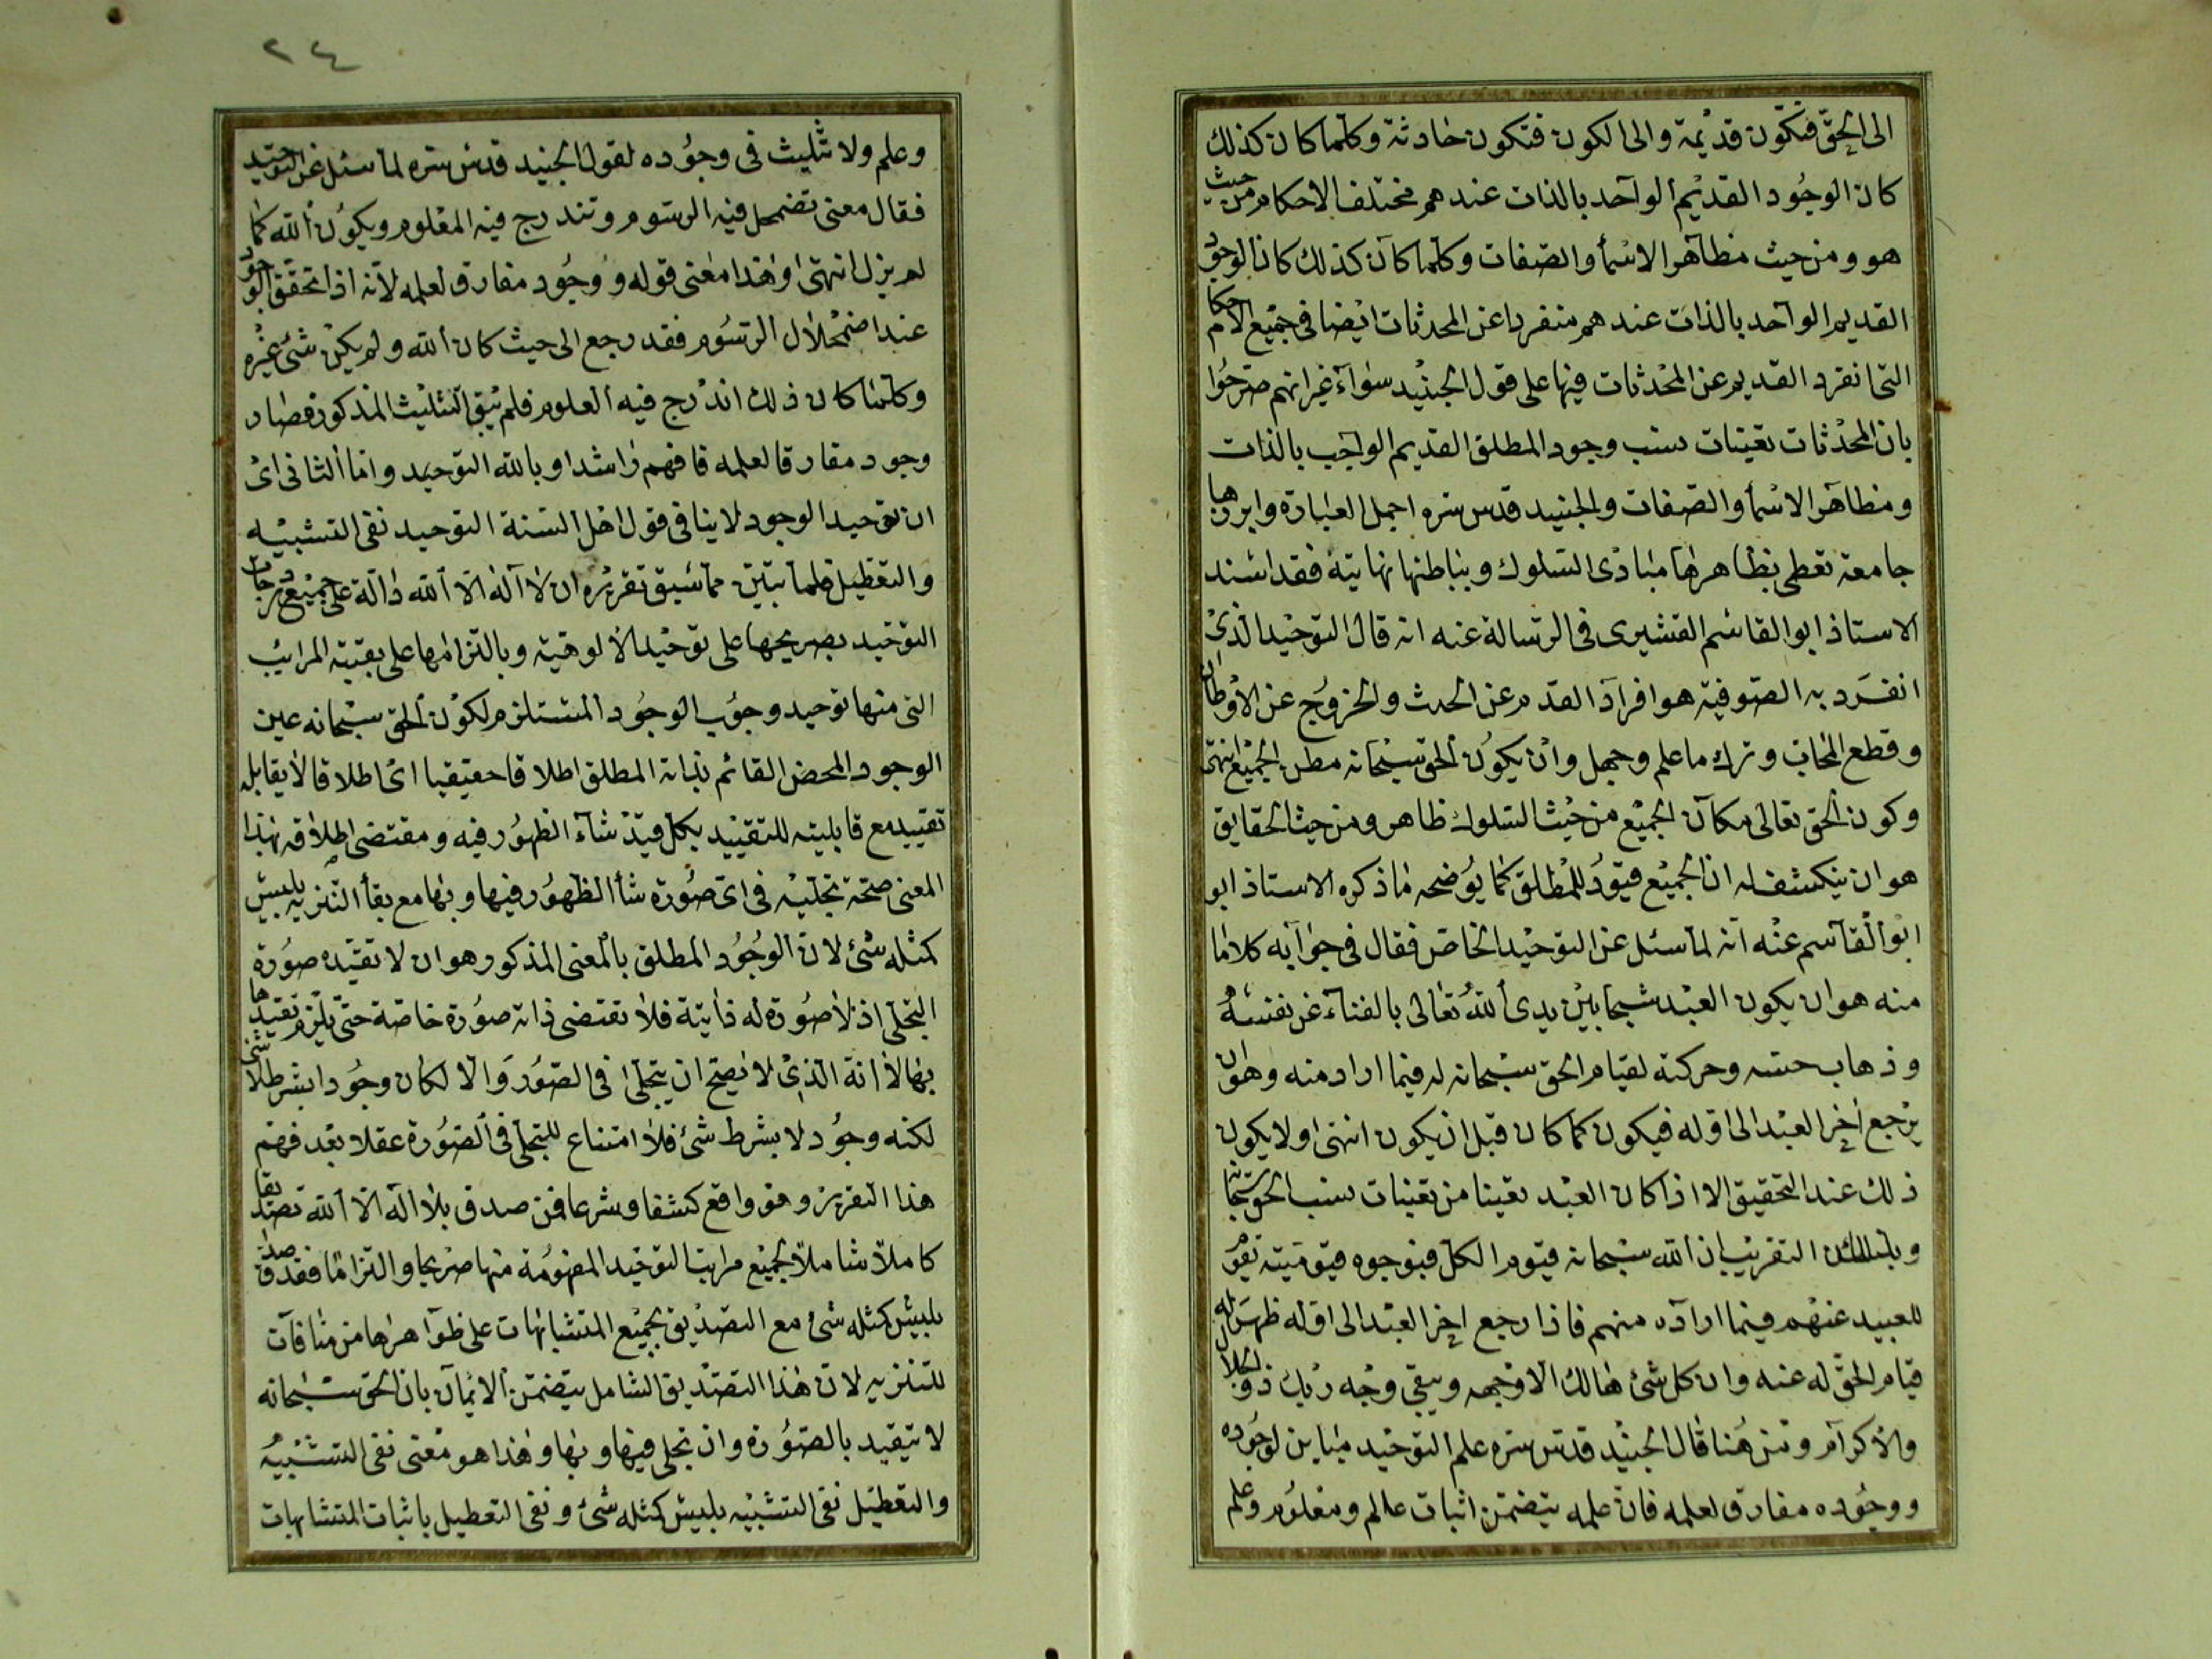 الى الحقّ فتكون قديمة والى الكون فتكون حادثة وكلما كان كذلك
كان الوجود القديم الواحد بالذات عندهم مختلف الاحكام من حيث
هو ومن حيث مظاهر الاسمأ والصفات وكلما كان كذلك كان الوجود
القديم الواحد بالذات عندهم منفردا عن المحدثات ايضا فى جميع الاحكام
التى انفرد القديم عن المحدثات فيها على قول الجنيد سوآء غير انهم صرحوا
بان المحدثات تعينات نسب وجود المطلق القديم الواجب بالذات
ومظاهر الاسمأ والصفات والجنيد قدس سره اجمل العبارة وابرزها
جامعة تعطى بظاهرها مبادى السلوك وبباطنها نهايته فقد اسند
الاستاذ ابو القاسم القشيرى فى الرسالة عنه انه قال التوحيد الذى
انفرد به الصوفية هو افراد القدم عن الحدث والخروج عن الاوطان
وقطع المحاب وترك ما علم وجهل وان يكون الحق سبحانه مكان الجميع انتهى
وكون الحق تعالى مكان الجميع من حيث السلوك ظاهر ومن حيث الحقايق
هو ان ينكشف له ان الجميع قيود للمطلق كما يوضحه ما ذكره الاستاذ ابو
ابو القاسم عنه انه لما سئل عن التوحيد الخاص فقال فى جوابه كلاما
منه هو ان يكون العبد شبحا بين يدى الله تعالى بالفناء عن نفسه
وذهاب حسه وحركته لقيام الحق سبحانه له فيما اراد منه وهو ان
يرجع آخر العبد الى اوله فيكون كما كان قبل ان يكون انتهى ولا يكون
ذلك عند التحقيق الا اذا كان العبد تعينا من تعينات نسب الحق سبحانه
التقريب ان الله سبحانه قيوم الكل فبوجوه قيوميته تقوم
للعبيد عنهم فيما اراده منهم فاذا رجع اخر العبد الى اوله ظهر له
قيام الحق له عنه وان كل شئ هالك الا وجهه ويبقى وجه ربك ذو الجلال
والاكرام ومن هنا قال الجنيد قدس سره علم التوحيد مباين لوجوده
ووجوده مفارق لعلمه فان علمه يتضمن اثبات عالم ومعلوم وعلم
٢٤
وعلم ولا تثليث فى وجوده لقول الجنيد قدس سره لما سئل عن التوحيد
فقال معنى تضمحل فيه الرسوم وتندرج فيه العلوم ويكون الله كما
لم يزل انتهى وهذا معنى قوله ووجود مفارق لعلمه لانه اذا تحقق الوجود
عند اضمحلال الرسوم فقد رجع الى حيث كان الله ولم يكن شئ غيره
وكلما كان ذلك اندرج فيه العلوم فلم يبق التثليث المذكور فصار
وجود مفارقا لعلمه فافهم راشدا وبالله التوحيد واما الثانى اى
ان توحيد الوجود لا ينافى قول اهل السنة التوحيد نفى التشبيه
والتعطيل فلما تبين مما سبق تقريره ان لا اله الا الله دالة على جميع درجات
التوحيد بصريحها على توحيد الالوهية وبالتزامها على بقية المراتب
التى منها توحيد وجوب الوجود المستلزم لكون الحق سبحانه عين
الوجود المحض القائم بذاته المطلق اطلاقا حقيقيا اى اطلاقا لا يقابله
تقييد مع قابليته للتقييد بكل قيد شآء الظهور فيه ومقتضى اطلاقه بهذا
المعنى صحة تجليه فى اى صورة شأ الظهور فيها وبها مع بقأ التنزيه بليس
كمثله شئ لان الوجود المطلق بالمعنى المذكور هو ان لا تقيده صورة
التجلى اذ لا صورة له ذاتية فلا تقتضى ذاته صورة خاصة حتى يلزم تقيدها
بها لا انه الذى لا يصح ان يتجلى فى الصور والا لكان وجودا بشرط لا شئ
لكنه وجود لا بشرط شئ فلا امتناع للتجلى فى الصورة عقلا بعد فهم
هذا التقرير وهو واقع كشفا وشرعا فمن صدق بلا اله الا الله تصديقا
كاملا شاملا لجميع مراتب التوحيد المفهومة منها صريحا والتزاما فقد صدق
بليس كمثله شئ مع التصديق بجميع المتشابهات على ظواهرها من منافات
للتنزيه لان هذا التصديق الشامل يتضمن الايمان بان الحق سبحانه
لا يتقيد بالصورة وان تجلى فيها وبها وهذا هو معنى نفى التشبيه
والتعطيل نفى التشبيه بليس كمثله شئ ونفى التعطيل باثبات المتشابهات